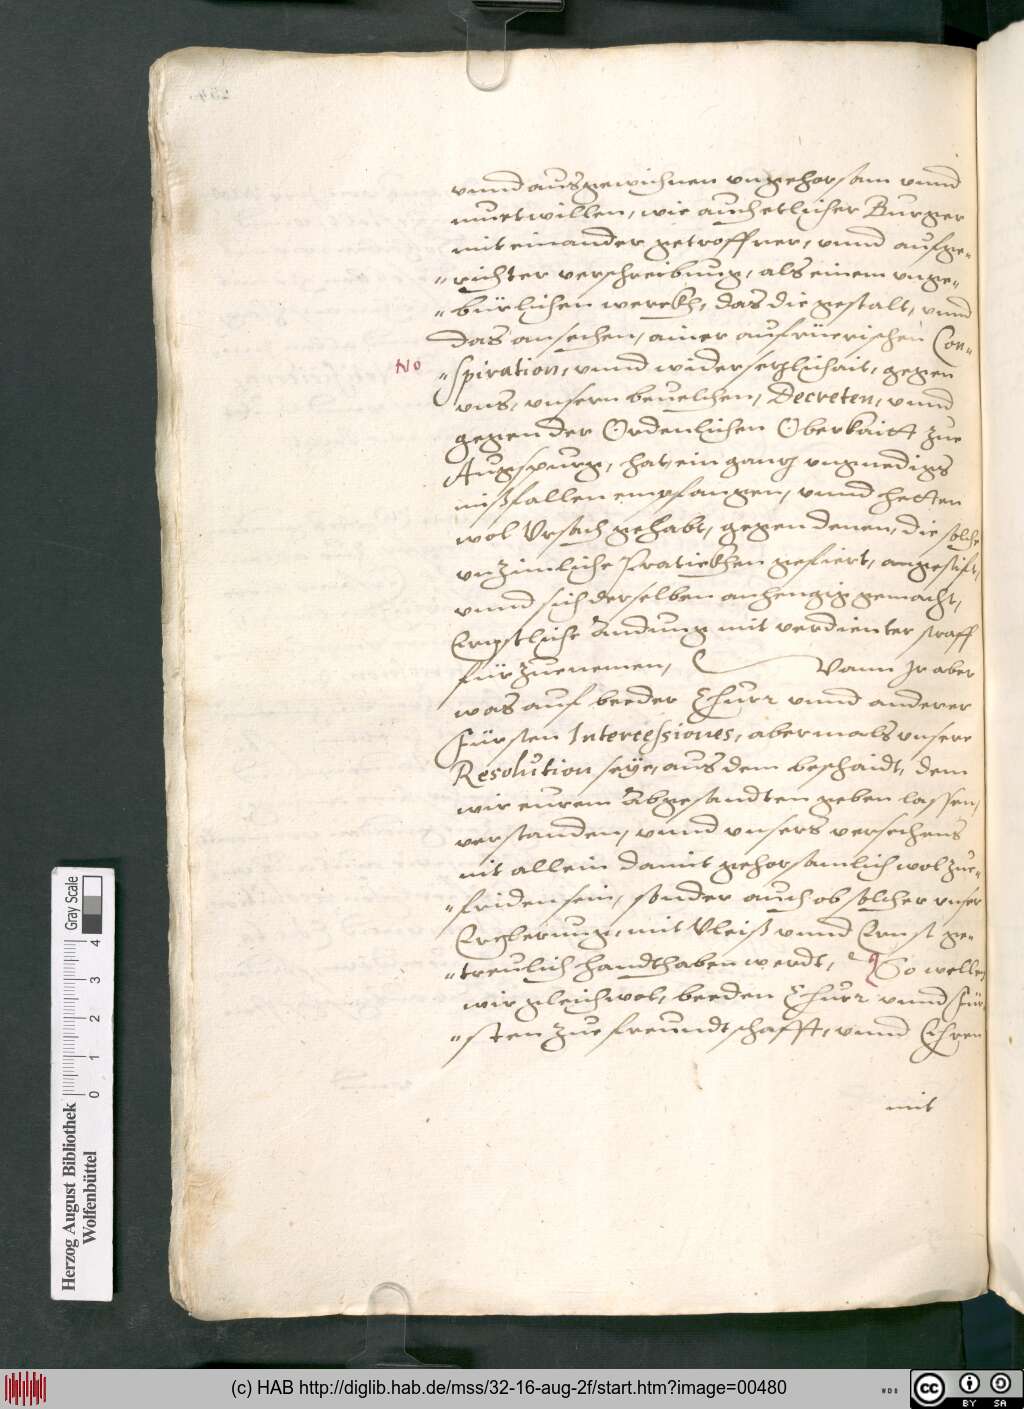 vnnd ausgewichnen vngehorsam vnnd
muetwillen, wie auch etlicher Burger
mit einander getroffner, vnnd aufge-
richter verschreibung, als einem vnge-
bürlichen werckh, das die gestalt, vnnd
das ansechen, ainer aufrüerischen Con-
NO
spiration, vnnd widersetzlichait, gegen
vns, vnsern beuelchen, Decreten, vnnd
gegen der Ordenlichen Oberkaitt zue
Augspurg, hat, ein gantz vngnedigs
mißfallen empfangen, vnnd hetten
wol Vrsach gehabt, gegen denen, die solche
vnzimliche Pratickhen gefiert, angestift,
vnnd sich derselben anhengig gemacht,
Ernstliche Andung mit verdienter straff
fürzuenemen, Wann Ir aber
was auf beeder Churr vnnd anderer
Fürsten Intercessiones, abermals vnsere
Resolution seye, aus dem beschaidt, dem
wir eurem Abgesandten geben lassen,
verstanden, vnnd vnsers versechens
nit allein damit gehorsamlich wol zue-
friden sein, sonder auch ob solcher vnser
mit Vleiß vnnd Ernst ge-
treulich handthaben werdt, So wellen
wir gleichwol, beeden Churr vnnd Für-
sten zue freundtschafft, vnnd Ehren
mit
Herzog August Bibliothek
Wolfenbüttel
0 1 2 3 4
Gray Scale
(c) HAB http://diglib.hab.de/mss/32-16-aug-2f/start.htm?image=00480
WDB
cc
BY SA